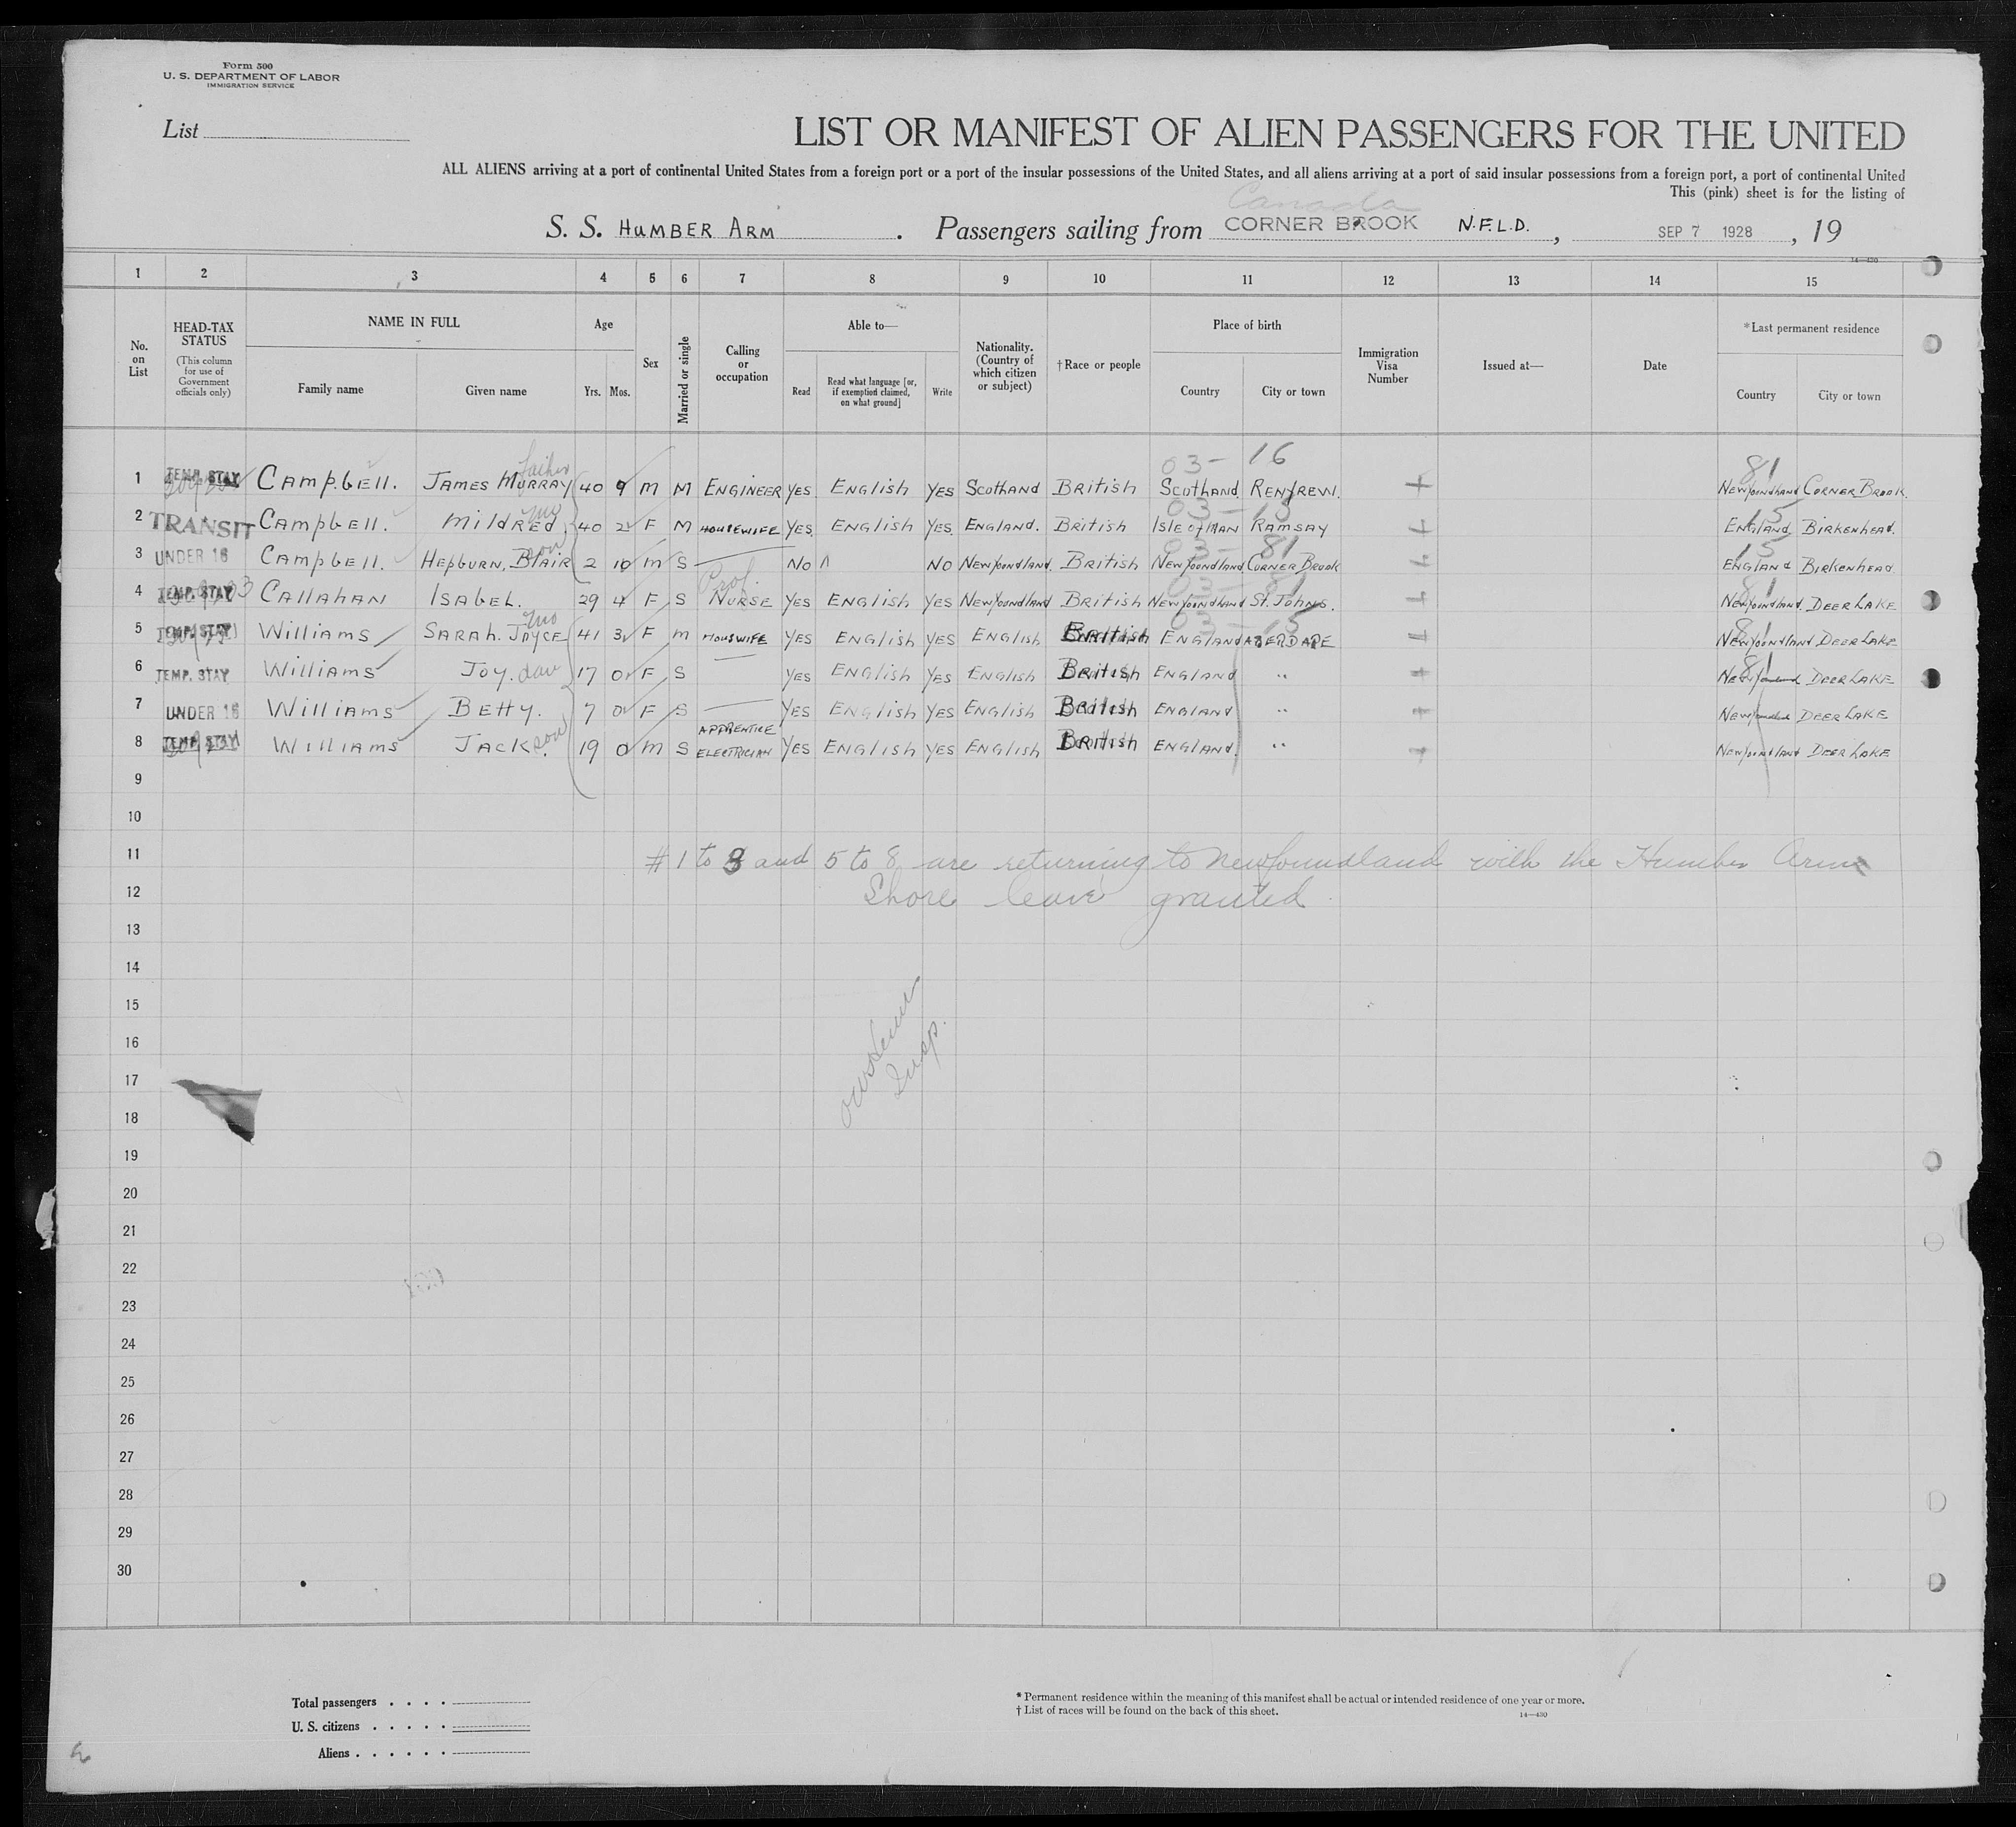 Form 500
U. S. DEPARTMENT OF LABOR
IMMIGRATION SERVICE
List
LIST OR MANIFEST OF ALIEN PASSENGERS FOR THE UNITED
ALL ALIENS arriving at a port of continental United States from a foreign port or a port of the insular possessions of the United States, and all aliens arriving at a port of said insular possessions from a foreign port, a port of continental United
This (pink) sheet is for the listing of
Canada
S. S. HUMBER ARM . Passengers sailing from CORNER BROOK N.F.L.D. , SEP 7 1928 , 19
14—430
1 2 3 4 5 6 7 8 9 10 11 12 13 14 15
No. on List
HEAD-TAX STATUS
(This column for use of Government officials only)
NAME IN FULL
Family name Given name
Age
Yrs. Mos.
Sex
Married or single
Calling or occupation
Able to—
Read
Read what language [or, if exemption claimed, on what ground]
Write
Nationality. (Country of which citizen or subject)
†Race or people
Place of birth
Country City or town
Immigration Visa Number
Issued at—
Date
*Last permanent residence
Country City or town
03 - 16 81
1 TEMP. STAY CampbEll. JAMES MURRAY father 40 9 M M ENGINEER YES ENGlish YES Scotland British Scotland RENFREW. Newfoundland CORNER BROOK.
03 - 13 15
2 TRANSIT CampbEll. MildREd. mo 40 2 F M HOUSEWIFE YES. ENGlish YES. ENGLAND. British Isle of MAN RAMSAY ENGLAND BIRKENHEAd.
03 - 81 15
3 UNDER 16 CampbEll. HEpbURN, BlAIR son 2 10 M S — No NO NEWfoundland. British Newfoundland CORNER BROOK ENGLANd BIRKENHEAd
03 - 81 81
4 TEMP. STAY CAllAHAN ISAbEL. 29 4 F S Prof. NURSE YES ENGlish YES NEWfoundland British Newfoundland St. JohNs. Newfoundland. DEER LAKE
03 - 15 81
5 TEMP. STAY Williams SARAh. JOYCE mo 41 3 F M HOUSWIFE YES ENGlish YES ENGlish British ENGLAND ABERDARE NEWfoundland DEER LAKE
6 TEMP. STAY Williams Joy. dau 17 0 F S — YES ENGlish YES ENGlish British ENGLANd " 81 DEER LAKE
7 UNDER 16 Williams BEtty. 7 0 F S — YES ENGlish YES ENGlish British ENGLANd " Newfoundland DEER LAKE
8 TEMP. STAY Williams JACK. son 19 0 M S APPRENTICE ELECTRICIAN YES ENGlish YES ENGlish British ENGLANd. " Newfoundland DEER LAKE
9
10
11 # 1 to 3 and 5 to 8 are returning to Newfoundland with the Humber Arm
12 Shore leave granted.
13
14
15
16 Insp.
17
18
19
20
21
22
23
24
25
26
27
28
29
30
Total passengers . . . .
U. S. citizens . . . . .
Aliens . . . . . .
* Permanent residence within the meaning of this manifest shall be actual or intended residence of one year or more.
† List of races will be found on the back of this sheet.
14—430